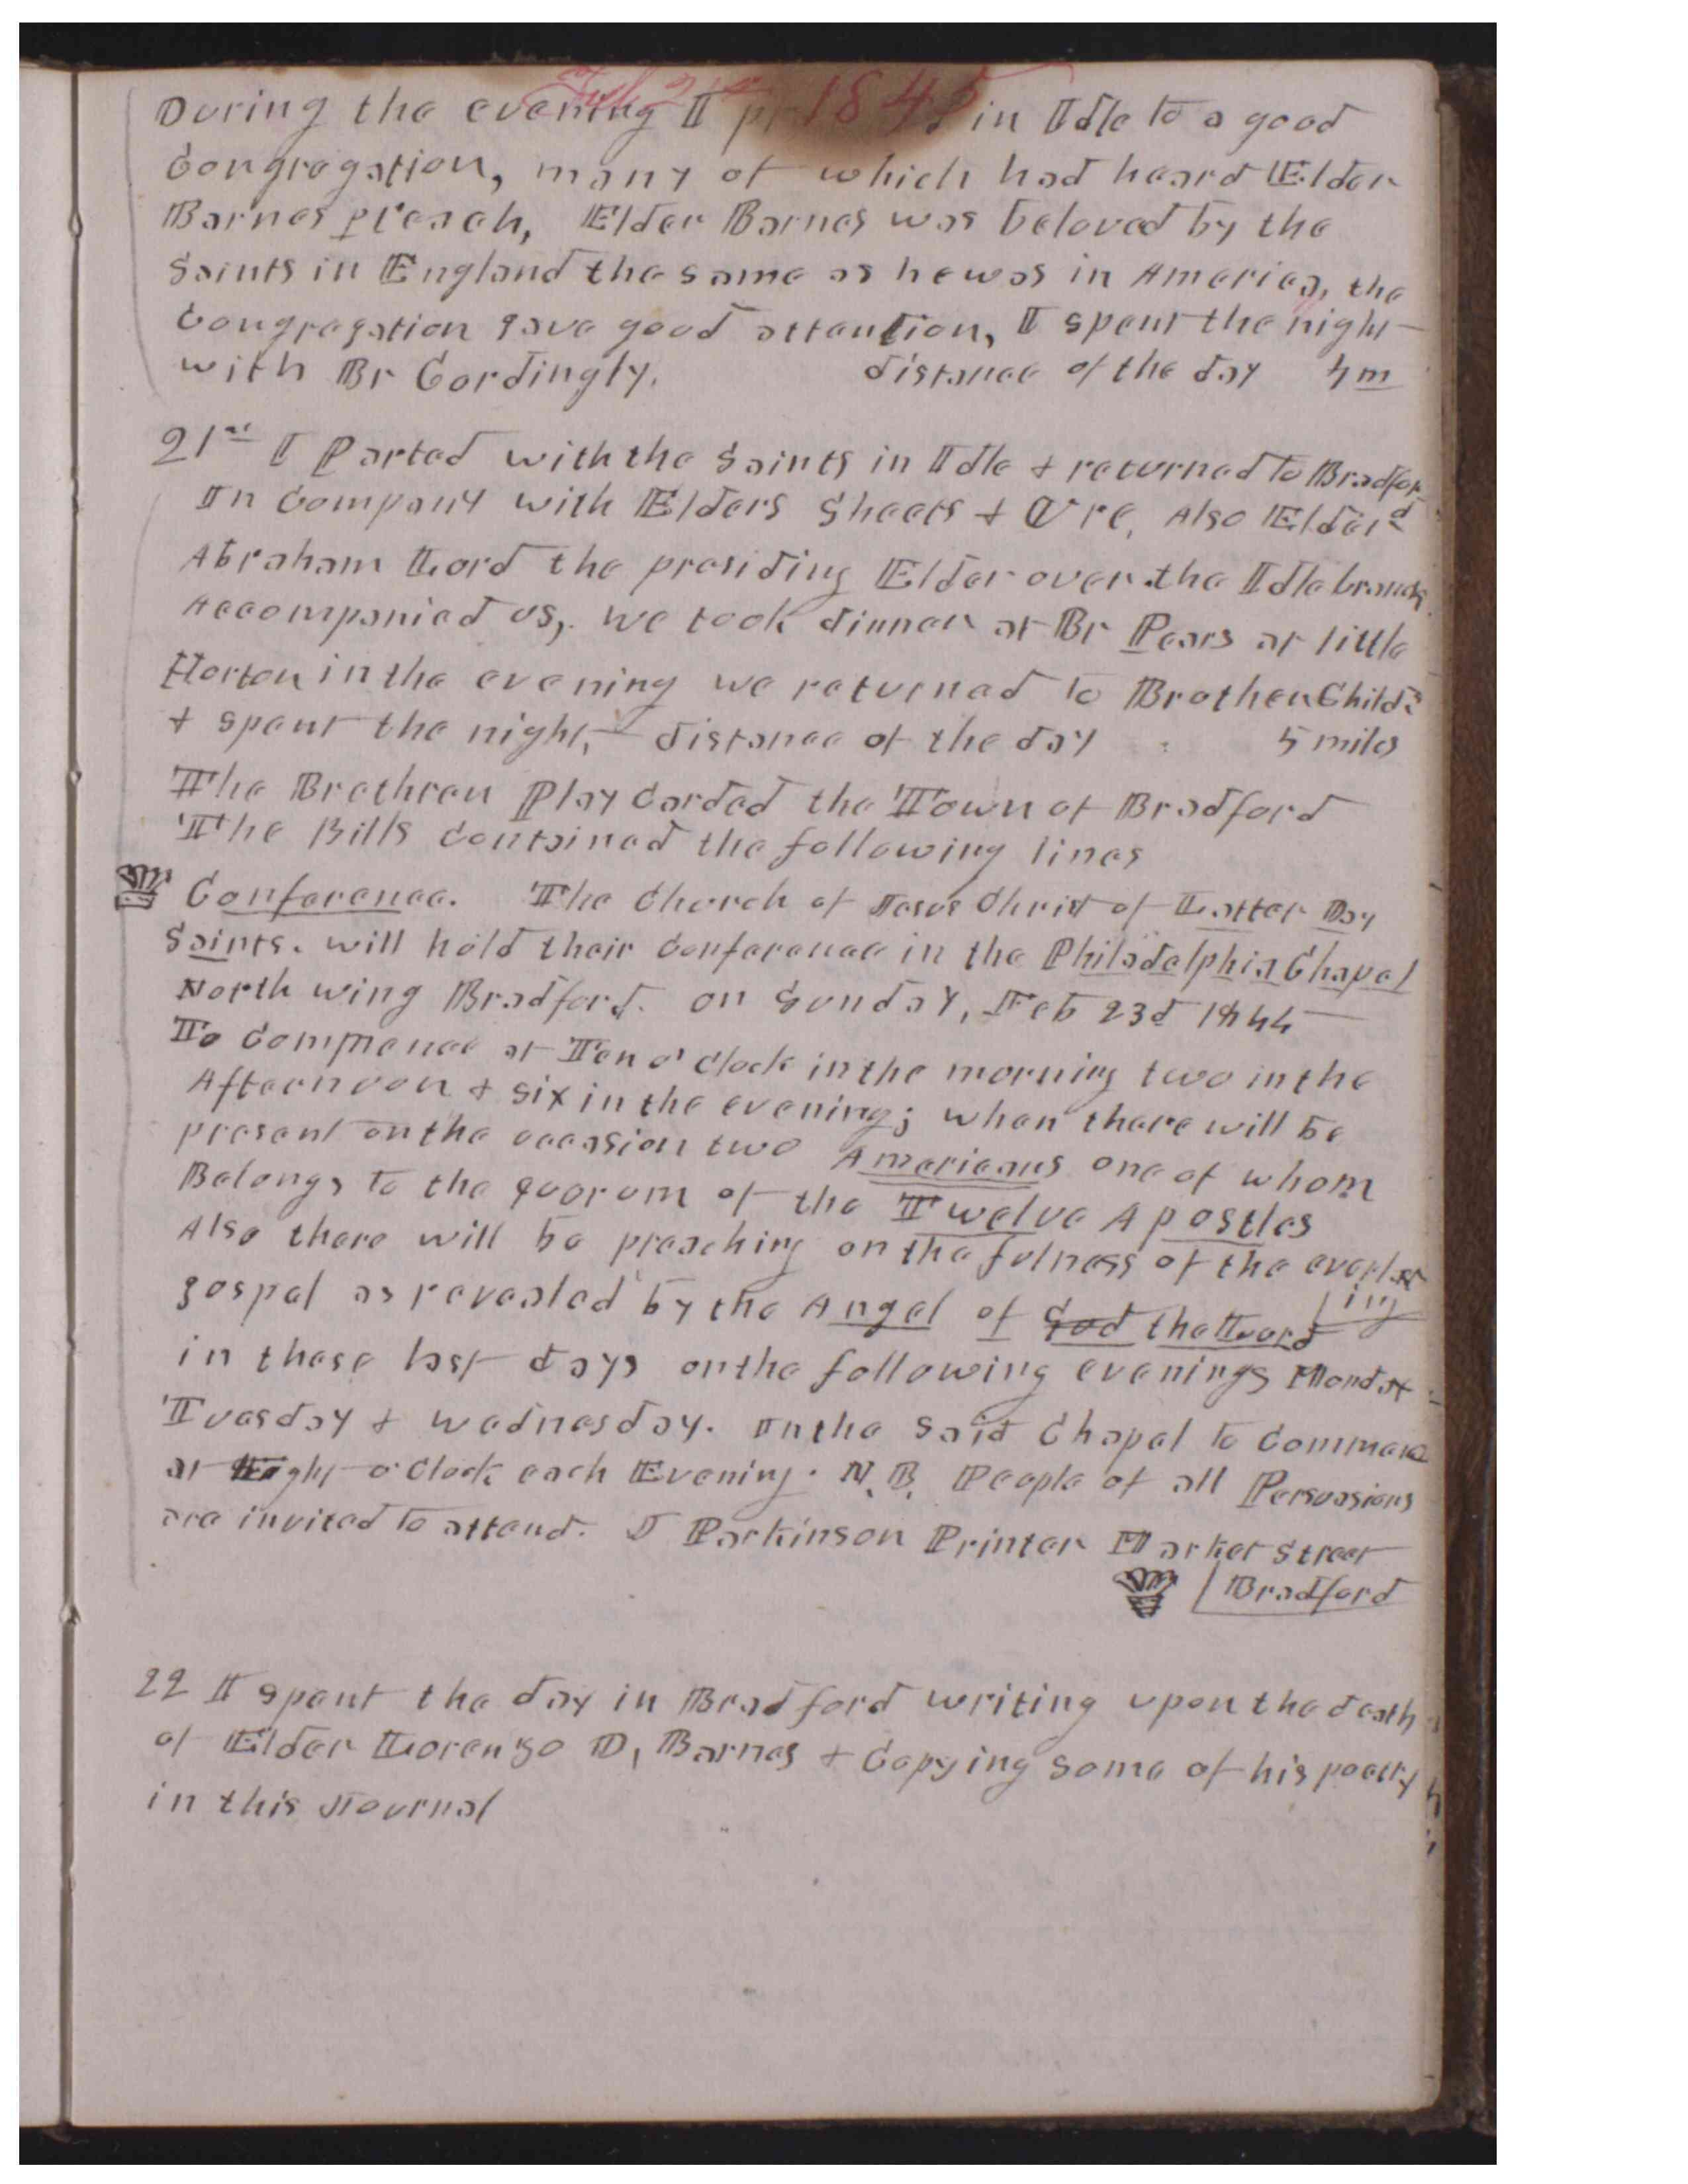 1845
During the evening I in Idle to a good
Congregation, many of which had heard Elder
Barnes preach, Elder Barnes was beloved by the
Saints in England the same as he was in America, the
Congregation gave good attention, I spent the night
with Br Cordingly. distance of the day 4 m
21st I Parted with the Saints in Idle & returned to Bradford
In Company with Elders Sheets & Ure, Also Elder
Abraham Lord the presiding Elder over the Idle branch
Accompanied us, we took dinner at Br Pears at little
Horton in the evening we returned to Brother Childs
& spent the night, distance of the day 5 miles
The Brethren Playcarded the Town of Bradford
The Bills Contained the following lines
Conference. The Church of Jesus Christ of Latter Day
Saints. will hold their Conference in the Philadelphia Chapel
North wing Bradford. on Sunday, Feb 23d 1844
To Commence at Ten o'clock in the morning two in the
Afternoon & six in the evening; when there will be
present on the occasion two Americans one of whom
Belongs to the quorum of the Twelve Apostles
Also there will be preaching on the fulness of the everlast
ing
gospel as revealed by the Angel of God the Lord
in these last days on the following evenings Monday
Tuesday & Wednesday. In the said Chapel to Commence
at Eight o Clock each Evening. N.B. People of all Persuasions
are invited to attend. J Parkinson Printer Market Street
Bradford
22 I spent the day in Bradford writing upon the death
of Elder Lorenzo D, Barnes & Copying some of his poetry
in this Journal